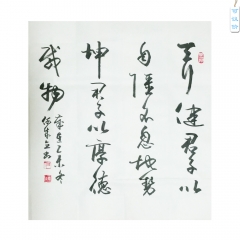 天行健君子以
自强不息地势
坤君子以厚德
载物
岁在乙未冬